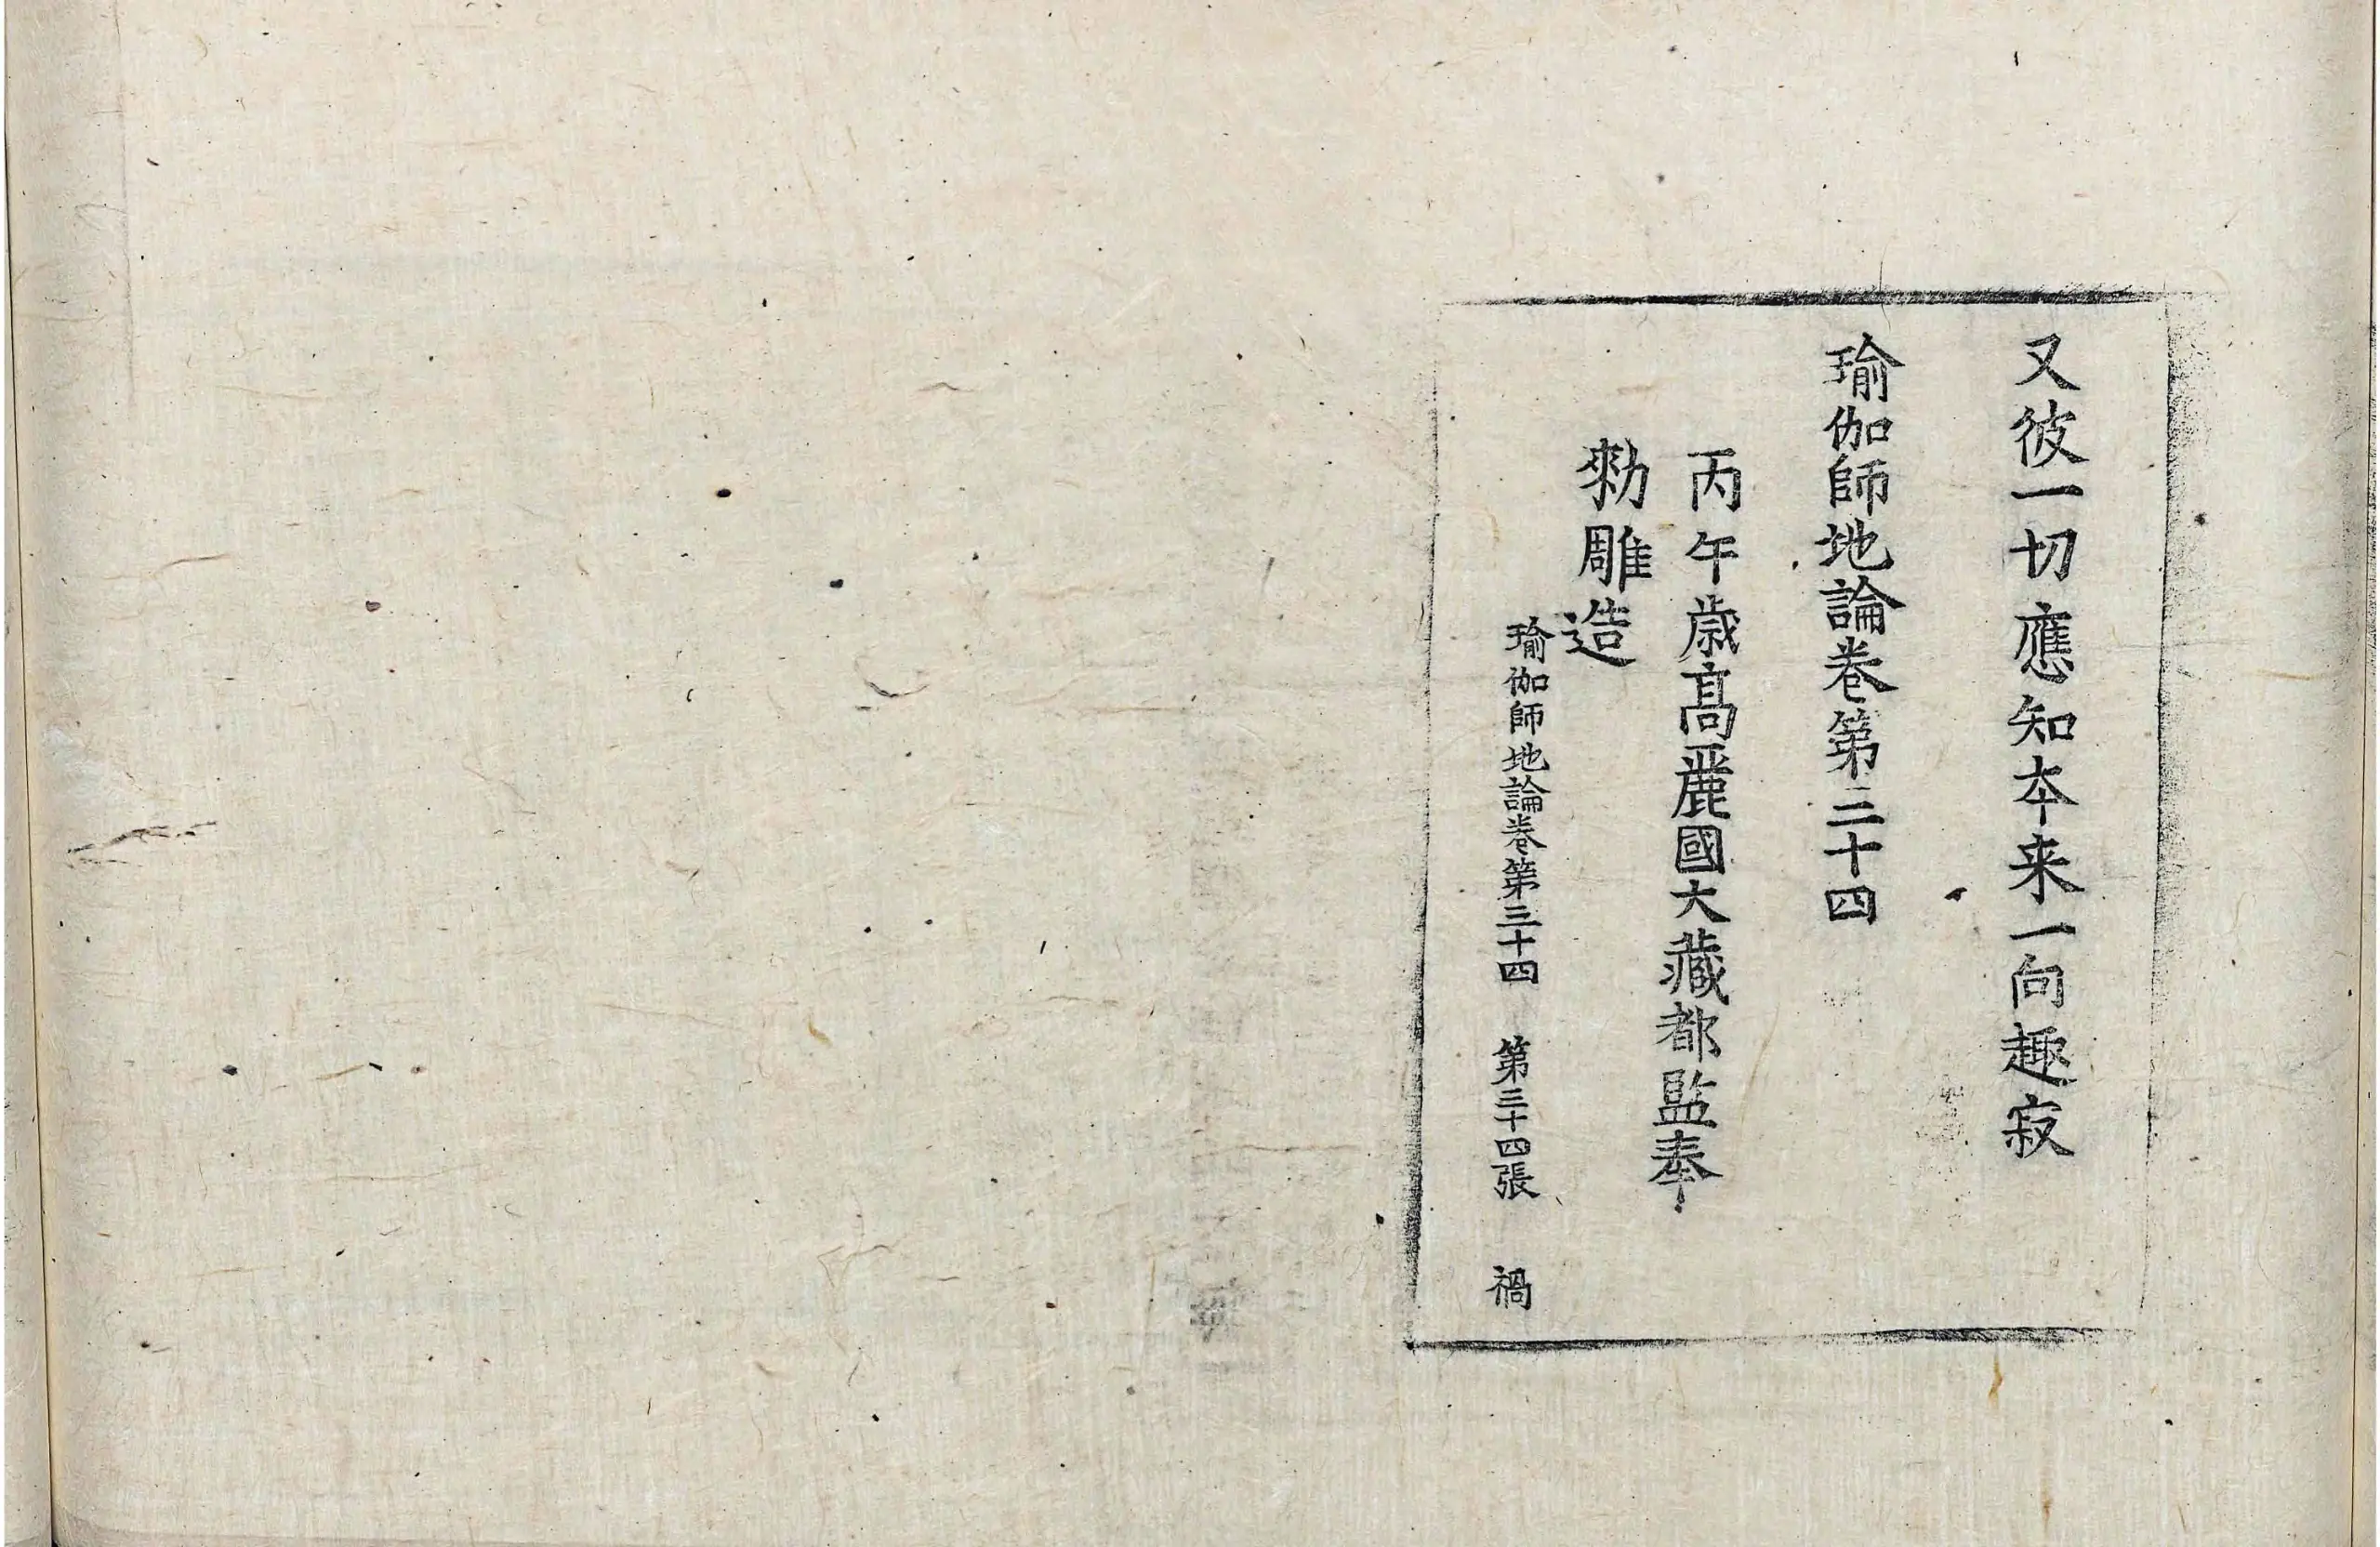 又彼一切應知本来一向趣寂
瑜伽師地論卷第三十四
丙午歳髙麗國大藏都監奉
勑雕造
瑜伽師地論卷第三十四 第三十四張 禍